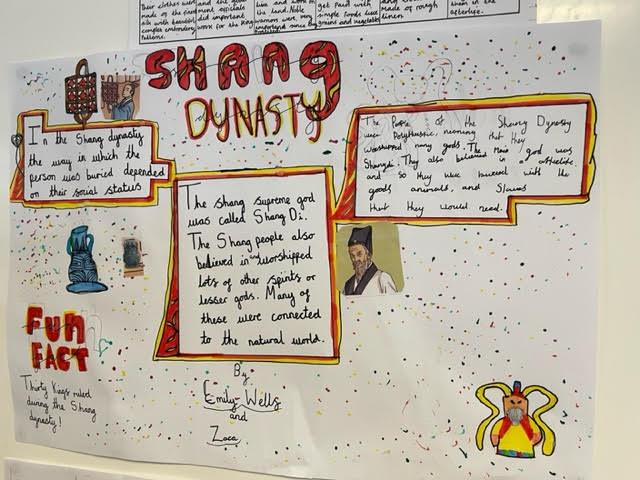 Their clothes were
made of the finest
silk with beautiful
complex embroidery
patterns.
and the
did important
work for the King
the land. Noble
warriors were very
important since
get paid with
simple foods like
grains and vegetables
made of rough
linen
them in the
afterlife.
SHANG
DYNASTY
In the Shang dynasty
the way in which the
person was buried depended
on their social status
The Shang supreme god
was called Shang Di.
The Shang people also
believed in and worshipped
lots of other spirits or
lesser gods. Many of
these were connected
to the natural world.
The People of the Shang Dynasty
were Polytheistic, meaning that they
worshipped many gods. The main god was
Shangdi. They also believed in a afterlife
and so they were burried with the
goods animals, and Slaves
that they would need.
FUN
FACT
Thirty Kings ruled
during the Shang
dynasty!
By
Emily Wells
and
Zara